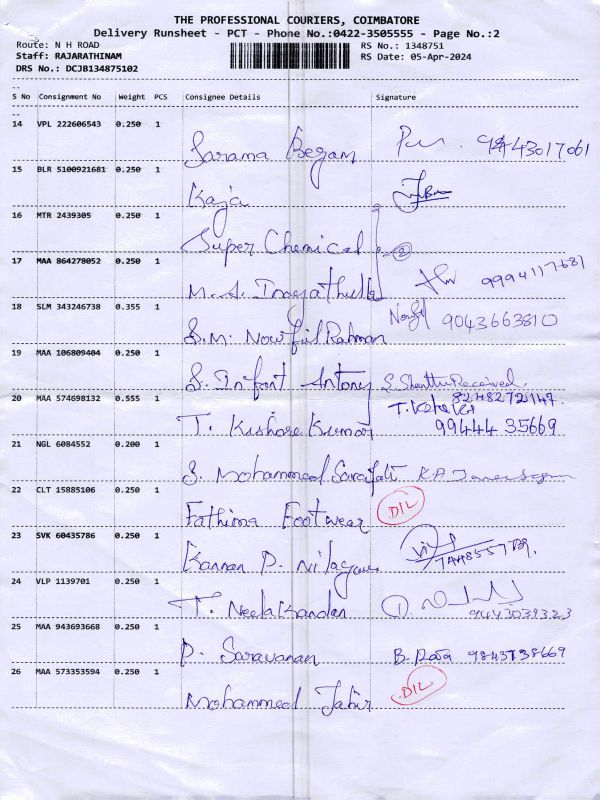 THE PROFESSIONAL COURIERS, COIMBATORE
Delivery Runsheet - PCT - Phone No.:0422-3505555 - Page No.:2
Route: N H ROAD RS No.: 1348751
Staff: RAJARATHINAM RS Date: 05-Apr-2024
DRS No.: DCJB134875102
S No Consignment No Weight PCS Consignee Details Signature
14 VPL 222606543 0.250 1
Sarama Begam
15 BLR 5100921681 0.250 1
Kaja
16 MTR 2439305 0.250 1
Super Chemical 2
17 MAA 864278052 0.250 1
M. S. Inayathulla 9994117681
18 SLM 343246738 0.355 1
S. M. Nowfil Rahman 9043663810
19 MAA 106809404 0.250 1
S. Infant Antony Received
20 MAA 574698132 0.555 1 8248272149
T. Kishore Kumar 99444 35669
21 NGL 6084552 0.200 1
S. Mohammed K.A.
22 CLT 15885106 0.250 1
Fathima Footwear DIL
23 SVK 60435786 0.250 1
Kannan P. Nilayam
24 VLP 1139701 0.250 1
T. Neelakandan 9443039323
25 MAA 943693668 0.250 1
P. Saravanan B. Raja 9843738669
26 MAA 573353594 0.250 1
Mohammed Jabir DIL